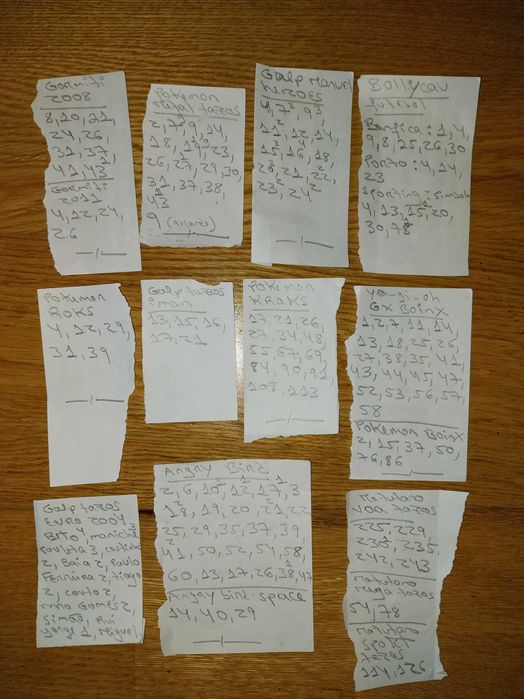 Gormiti
2008
8,10,21,
24,26,
31,37,
41,43
Gormiti
2011
4,12,24,
26
Pokemon
Metal tazos
2,7,9,14,
18,19,23,
26,27,29,30,
31,37,38,
43
9
Galp Marvel
heroes
4,7,9,
11,12,14,
15,16,18,
20,21,22,
23,24
Bollycau
futebol
Benfica: 1,4,
9,8,25,26,30
Porto: 4,14,
23
Sporting: simbolo
4,13,15,20,
30,78
Pokemon
Roks
4,12,29,
31,39
Galp tazos
13,15,16,
17,21
Pokemon
KRAKS
17,21,26,
27,34,48,
55,67,69,
84,90,91,
108,113
Yu-gi-oh
GX Boinx
1,2,7,11,14,
13,18,25,26,
27,38,35,41,
43,44,45,47,
52,53,56,57,
58
Pokemon Boinx
2,15,37,50,
76,86
Galp tazos
Euro 2004
2, Baia 2, Paulo
Ferreira 2, tiago
2, couto 2,
nuno Gomes 2,
Simão, Rui
Jorge 1, Miguel
Angry Bird
2,6,10,12,17,3
18,19,20,21,22
25,29,35,37,39,
41,50,52,54,58,
60,13,17,26,38,47
Angry Bird space
14,40,29
Matutano
VOA tazos
225,229,
230,235,
242,243
Matutano
Mega tazos
54,78
Matutano
Sport
tazos
114,126